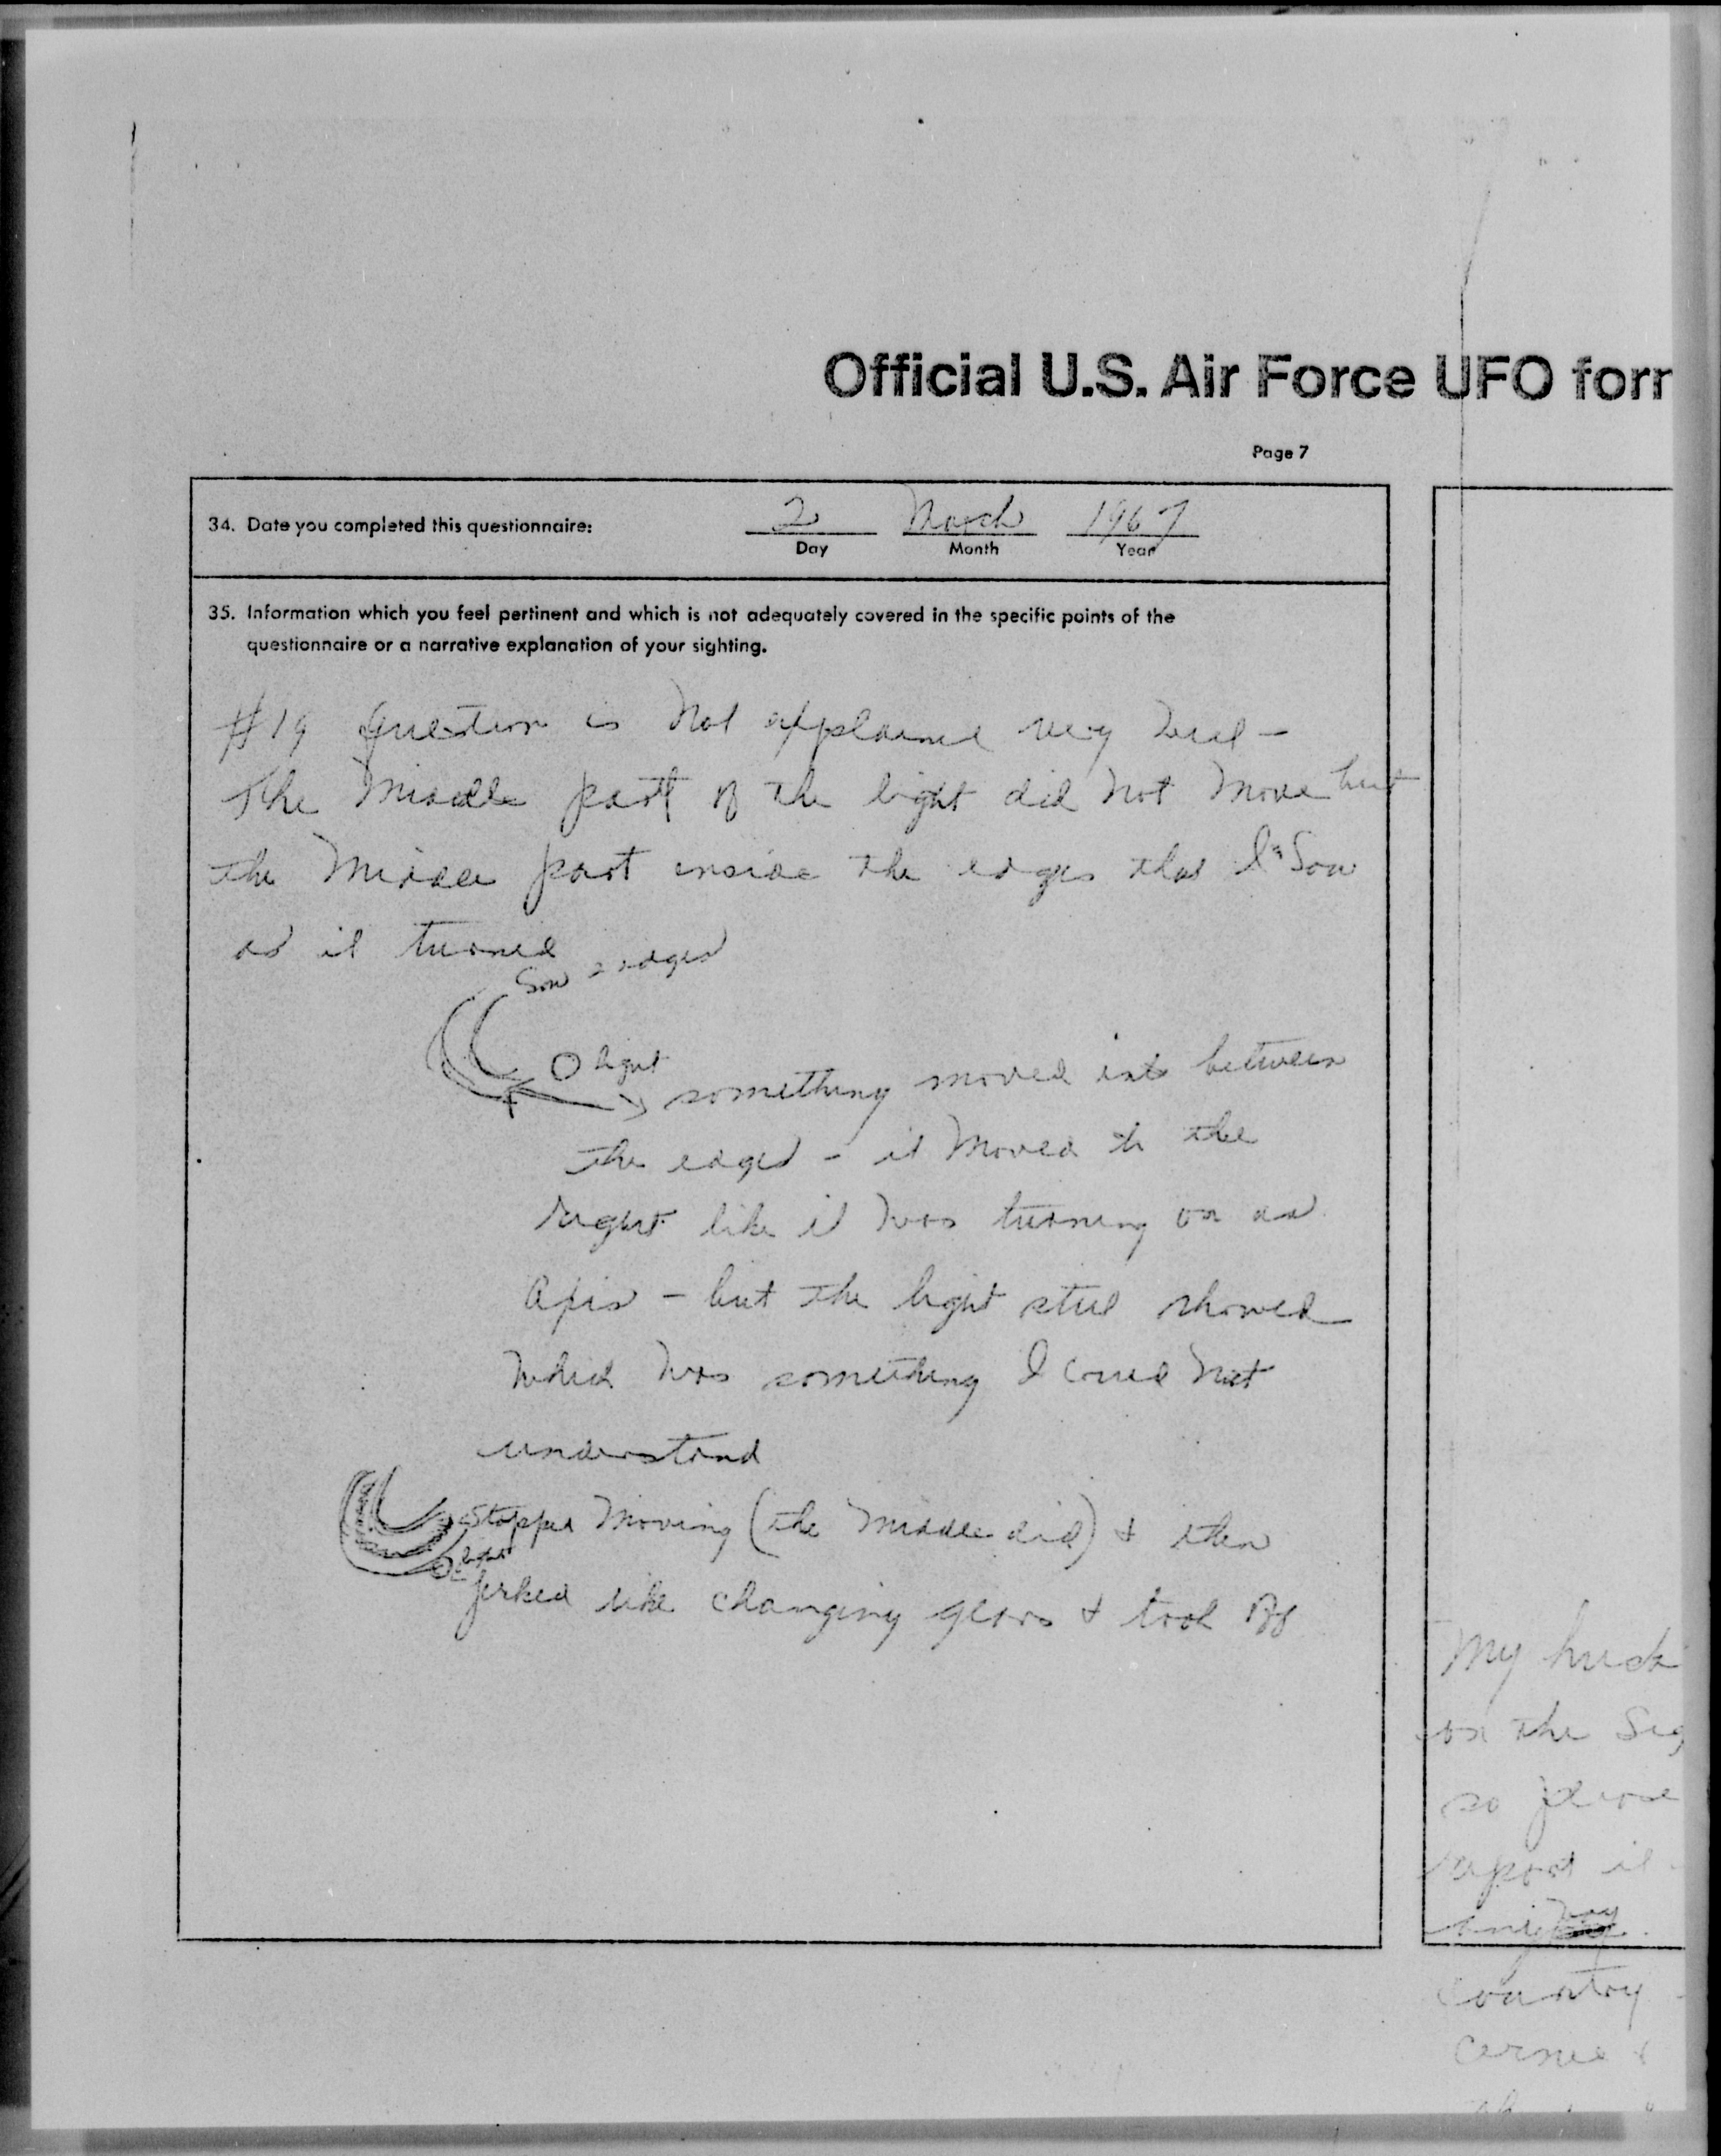 Official U.S. Air Force UFO for
Page 7
34. Date you completed this questionnaire:
2 March 1967
Day Month Year
35. Information which you feel pertinent and which is not adequately covered in the specific points of the
questionnaire or a narrative explanation of your sighting.
#19 Question is not explained very well -
The Middle part of the light did not move but
the Middle part inside the edges that I saw
as it turned
saw 2 edges
light
something moved into between
the edges - it moved to the
right like it was turning on an
axis - but the light still showed
which was something I could not
understand
stopped moving (the middle did) & then
light
jerked like changing gears & took off
My
on the
so please
report it
any way
country